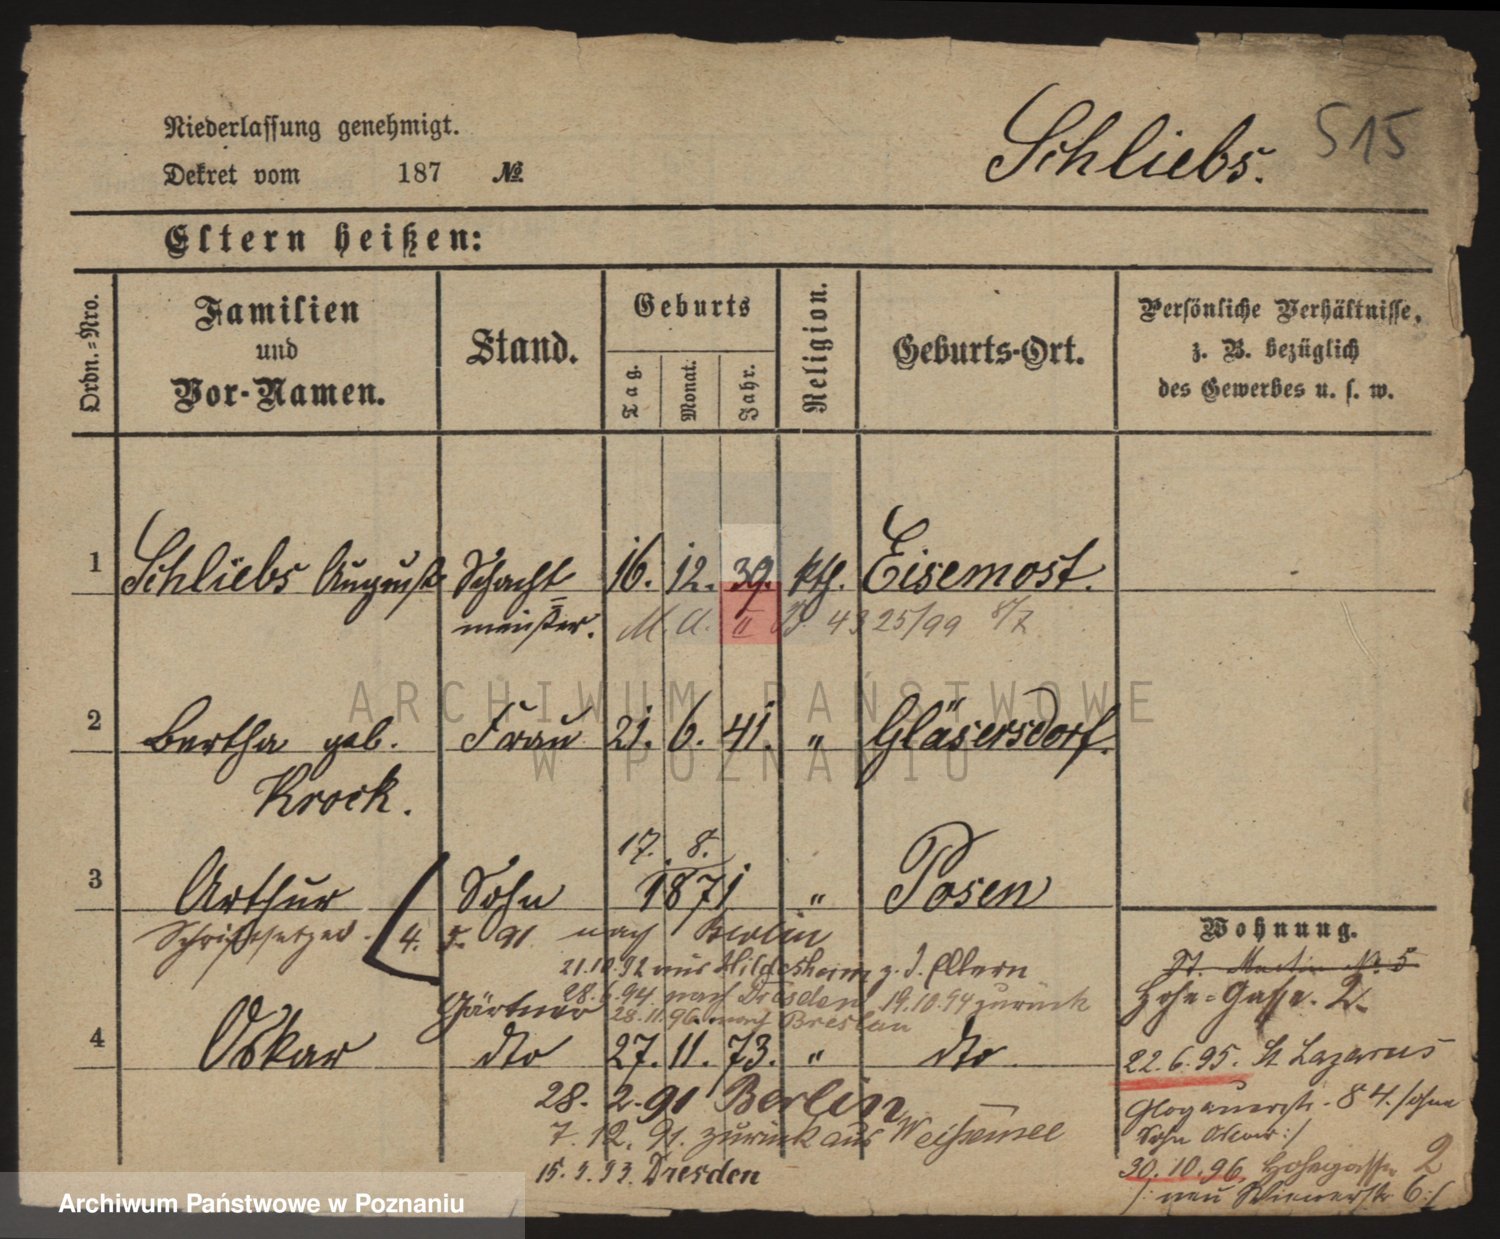 Niederlassung genehmigt.
Dekret vom 187 №
Schliebs.
515
Eltern heißen:
Ordn.=Nro.
Familien
und
Vor-Namen.
Stand.
Geburts
Tag.
Monat.
Jahr.
Religion.
Geburts-Ort.
Persönliche Verhältnisse,
z. B. bezüglich
des Gewerbes u. s. w.
1 Schliebs August Schacht 16. 12. 39. kth. Eisemost.
meister. M. A. II B 4325/99 8/2
2 Bertha geb. Frau 21. 6. 41. " Gläsersdorf.
Krock.
17. 8.
3 Arthur Sohn 1871 " Posen
Schriftsetzer. 4. 5. 91 nach Berlin
21.10.92 aus Hildesheim z. d. Eltern
Gärtner 28.6.94. nach Dresden 19.10.94 zurück
28.11.96. nach Breslau
4 Oskar dto 27. 11. 73. " dto
28. 2. 91 Berlin
7. 12. 91. zurück aus Weißensee
15. 5. 93. Dresden
Wohnung.
St. Martin No. 5
Hohe=Gasse. 2.
22. 6. 95. St Lazarus
Glogauerstr. 84. /ohne
Sohn Oscar:/
30. 10. 96. Hohegasse 2
/: neu 6:/
ARCHIWUM PAŃSTWOWE
W POZNANIU
Archiwum Państwowe w Poznaniu